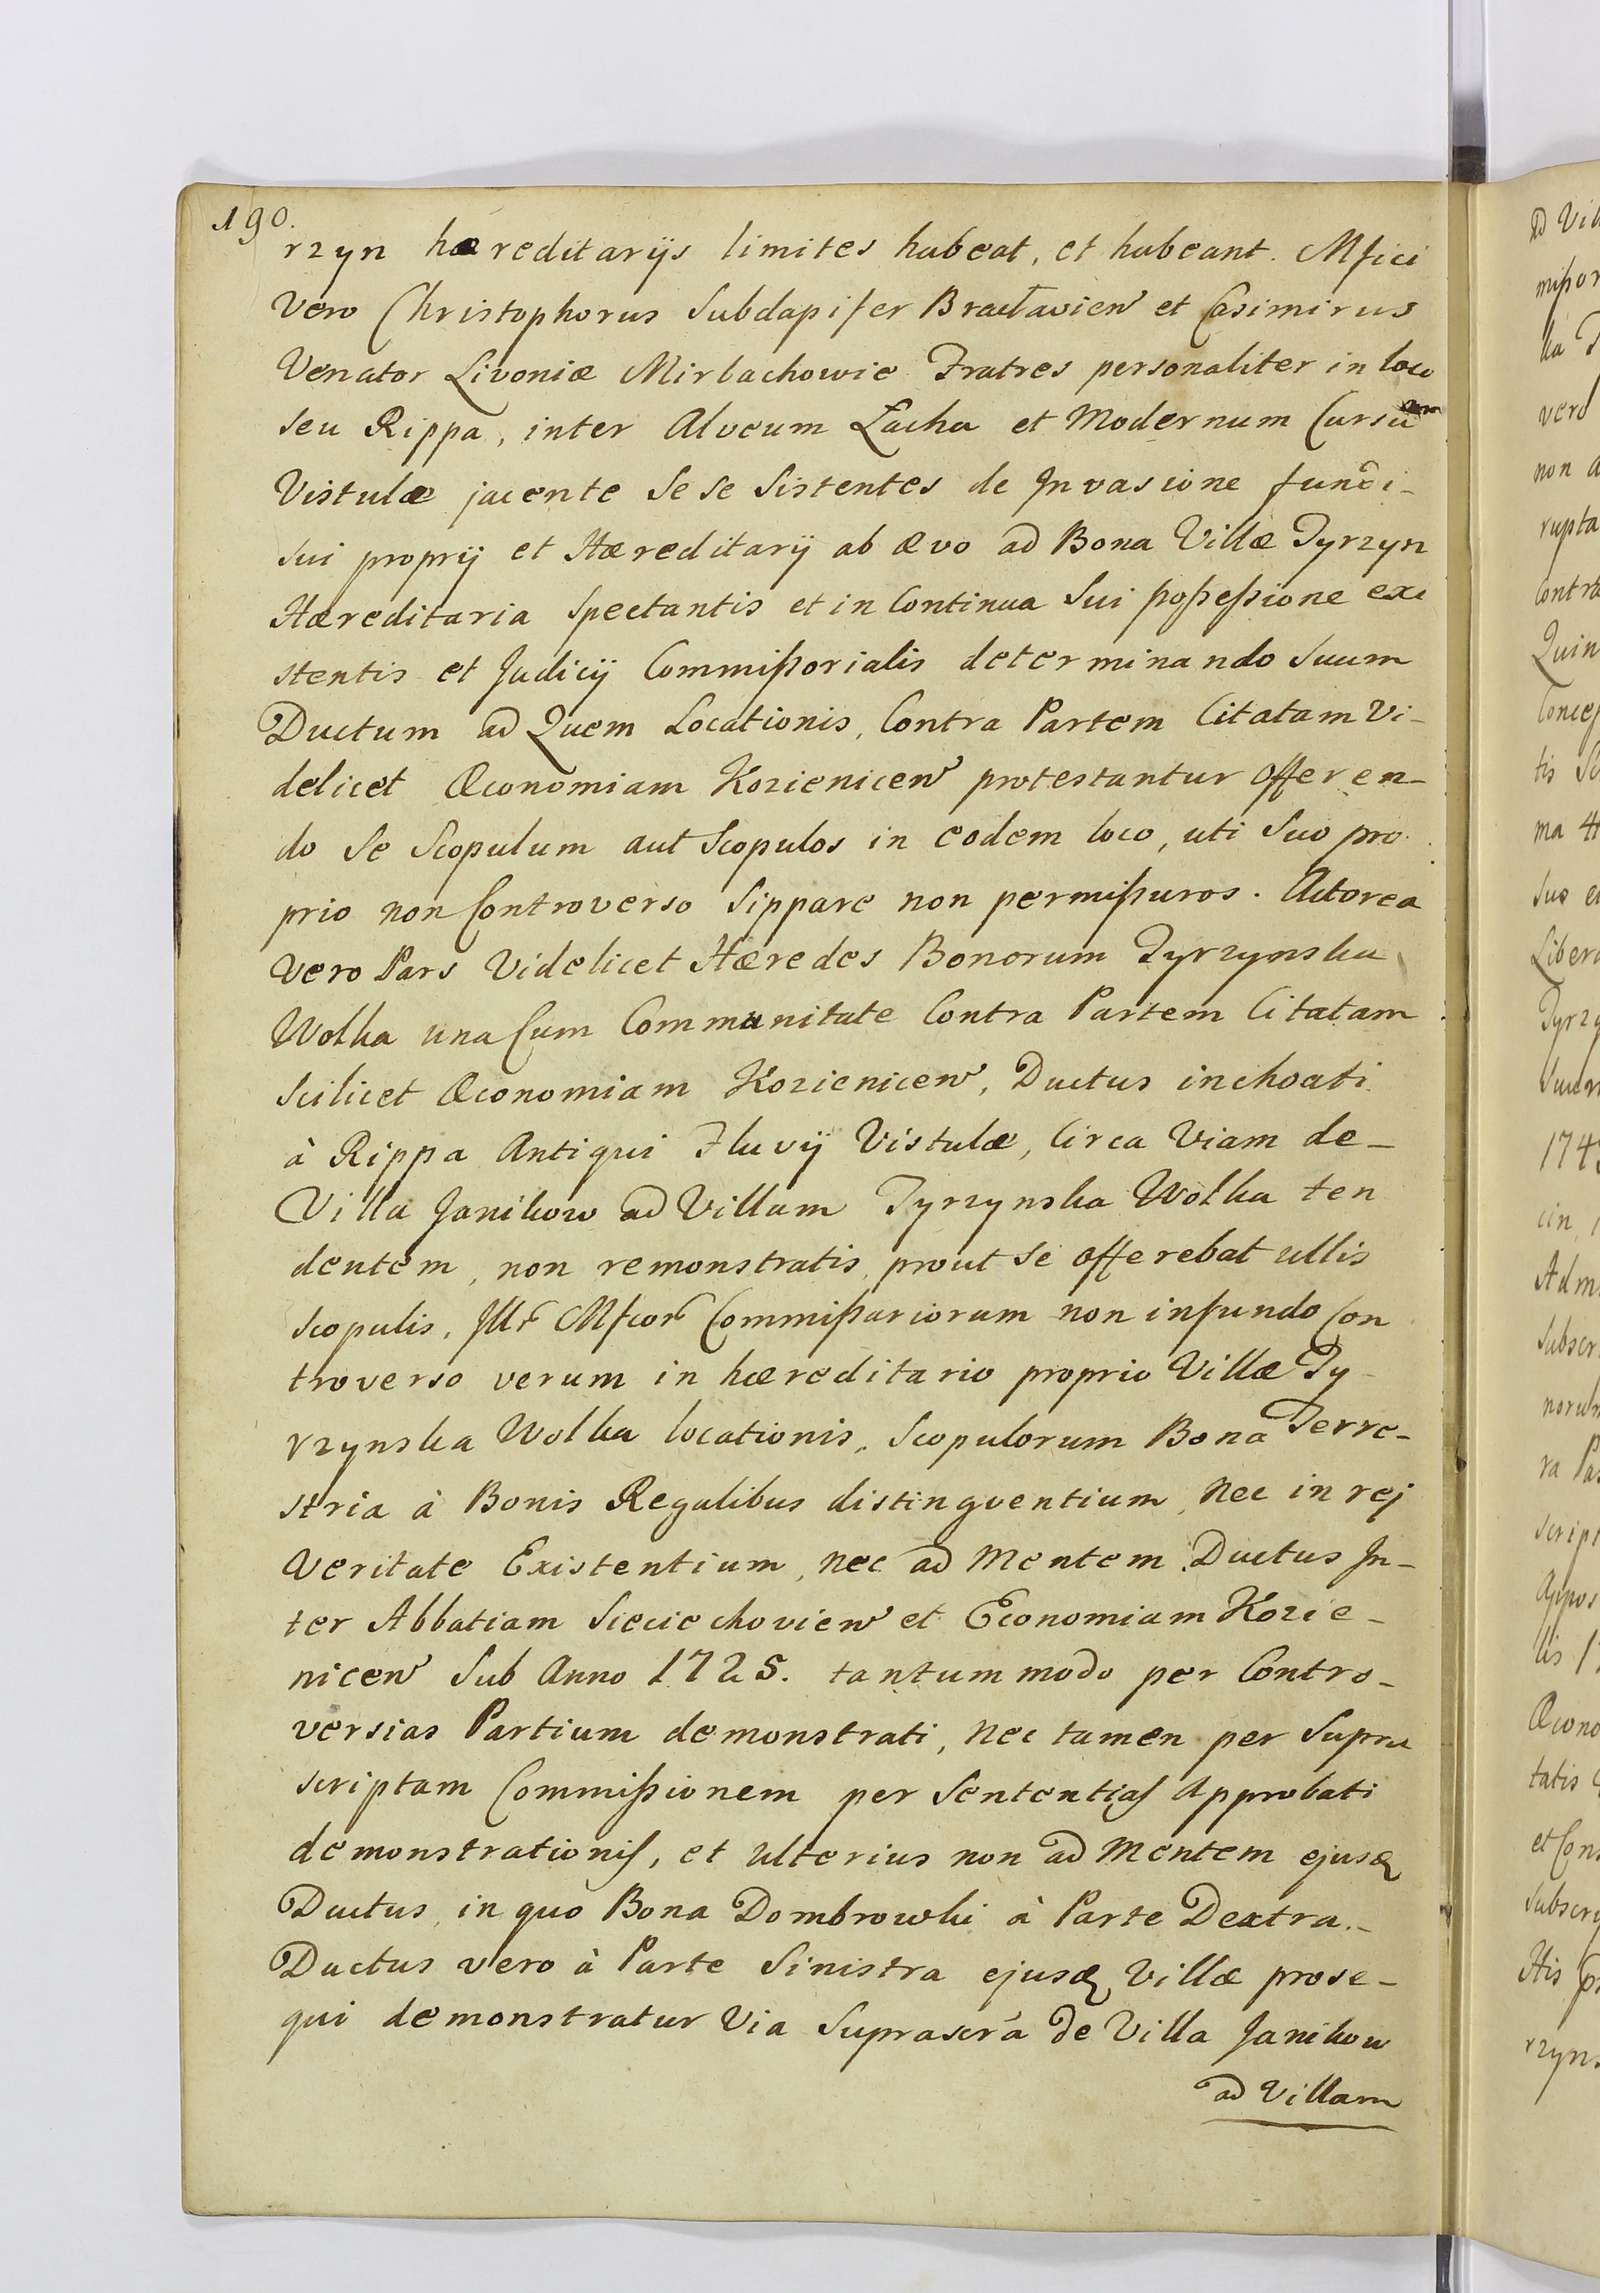 190.
rzyn hæreditarijs limites habeat, et habeant. Mfici
Vero Christophorus Subdapifer Bracłavien et Casimirus
Venator Livoniæ Mirbachowie Fratres personaliter in loco
seu Rippa, inter Alveum Łacha et Modernum Cursum
Vistulæ jacente Se se Sistentes de Invasione fundi-
sui proprij et Hæreditarij ab ævo ad Bona Villæ Tyrzyn
Hæreditaria Spectantis et in Continua Sui poßeßione exi
stentis et Judicij Commißorialis determinando Suum
Ductum ad Quem Locationis, Contra Partem Citatam Vi-
delicet Œconomiam Kozienicen protestantur offeren-
do Se Scopulum aut Scopulos in eodem loco, uti Suo pro
prio non Controverso Sippare non permißuros. Actorea
Vero Pars Videlicet Hæredes Bonorum Tyrzynska
Wolka una Cum Communitate Contra Partem Citatam
Scilicet Œconomiam Kozienicen, Ductus inchoati
à Rippa Antiqui Fluvij Vistulæ, Circa Viam de-
Villa Janikow ad Villam Tyrzynska Wolka ten
dentem, non remonstratis, prout Se offerebat ullis
Scopulis, Illr Mficor Commißariorum non in fundo Con
troverso verum in hæreditario proprio Villæ Ty-
rzynska Wolka locationis, Scopulorum Bona Terre-
stria à Bonis Regalibus distingventium, Nec in rej
Veritate Existentium, nec ad Mentem Ductus In-
ter Abbatiam Sieciechovien et Economiam Kozie-
nicen Sub Anno 1725. tantummodo per Contro-
versias Partium demonstrati, nec tamen per Supra
scriptam Commißionem per Sententias Approbati
demonstrationis, et ulterius non ad Mentem ejusq
Ductus, in quo Bona Dombrowki à Parte Dextra.-
Ductus vero à Parte Sinistra ejusq Villæ prose-
qui demonstratur Via Suprascra de Villa Janikow
ad Villam